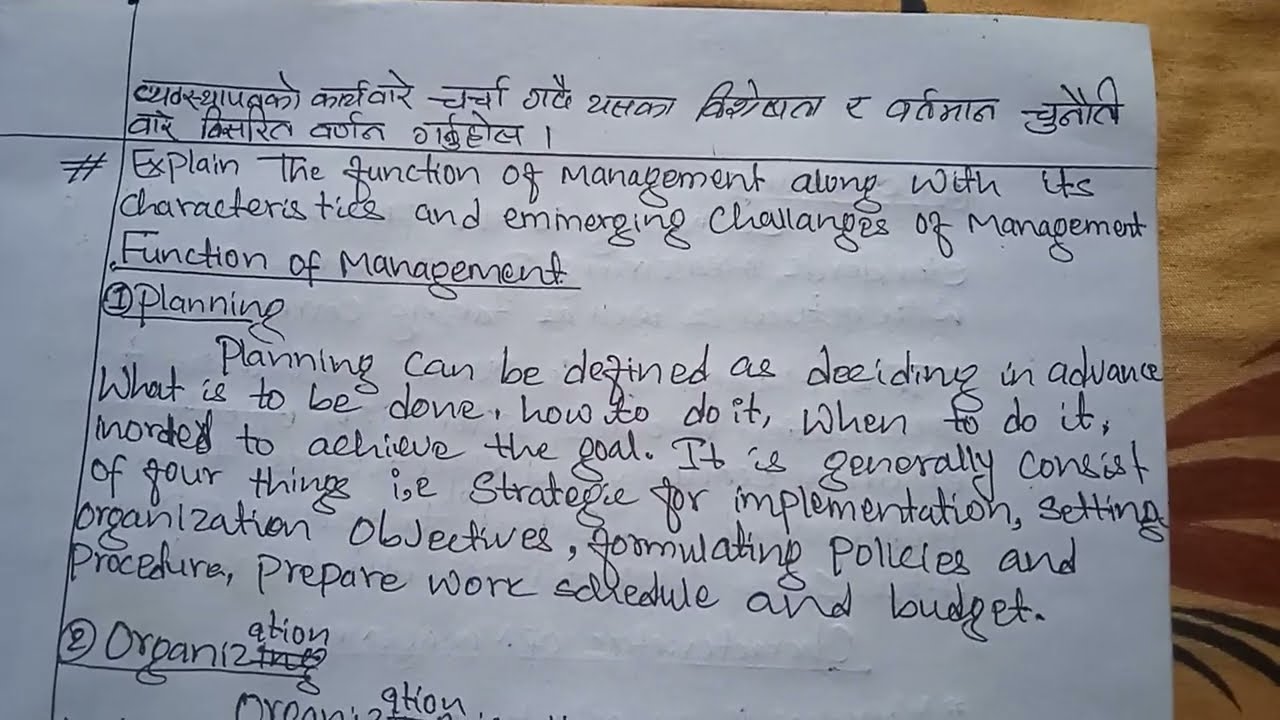 व्यवस्थापनको कार्यवारे चर्चा गर्दै यसका विशेषता र वर्तमान चुनौती
वारे विस्तरित वर्णन गर्नुहोस ।
# Explain The function of Management along with its
characteristics and emmerging Challanges of Management
Function of Management
① Planning
Planning can be defined as deciding in advance
What is to be done, how to do it, when to do it,
inorded to achieve the goal. It is generally consist
of four things i,e Strategie for implementation, setting
organization Objectives, formulating policies and
Procedure, prepare work schedule and budget.
② Organization
Organization